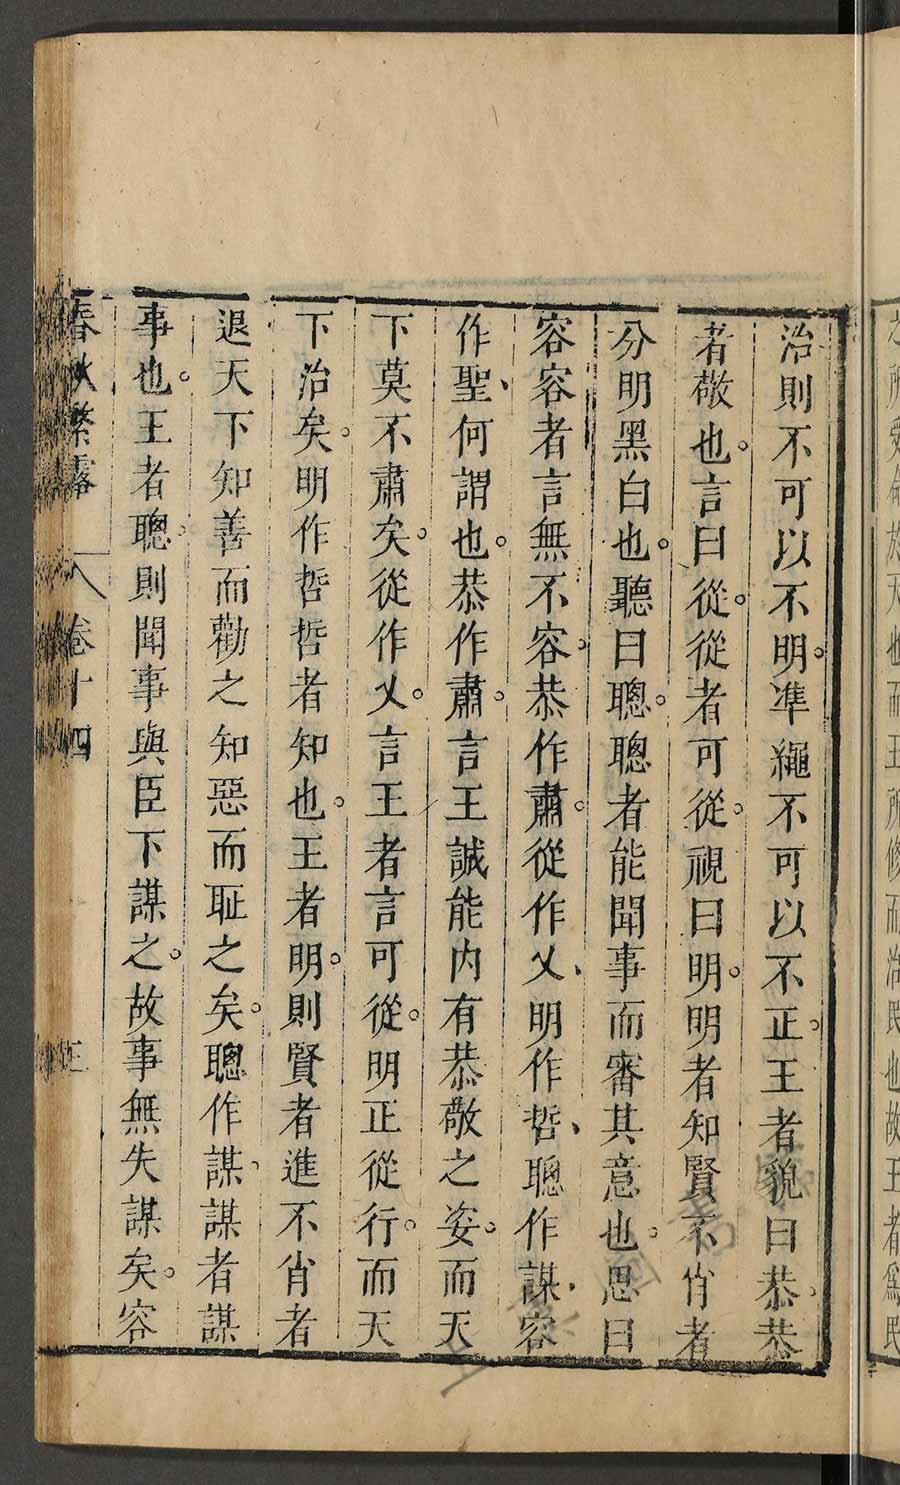 治則不可以不明。凖繩不可以不正。王者貌曰恭。恭
者敬也。言曰從。從者可從。視曰明。明者知賢不肖者
分明黑白也。聽曰聰。聰者能聞事而審其意也。思曰
容容者言無不容。恭作肅。從作乂、明作哲、聰作謀、容
作聖、何謂也。恭作肅。言王誠能内有恭敬之姿。而天
下莫不肅矣。從作乂。言王者言可從。明正從行。而天
下治矣。明作哲哲者知也。王者明。則賢者進不肖者
退天下知善而勸之知惡而耻之矣。聰作謀、謀者謀
事也。王者聰。則聞事與臣下謀之。故事無失謀矣。容
春秋繁露 卷十四 三